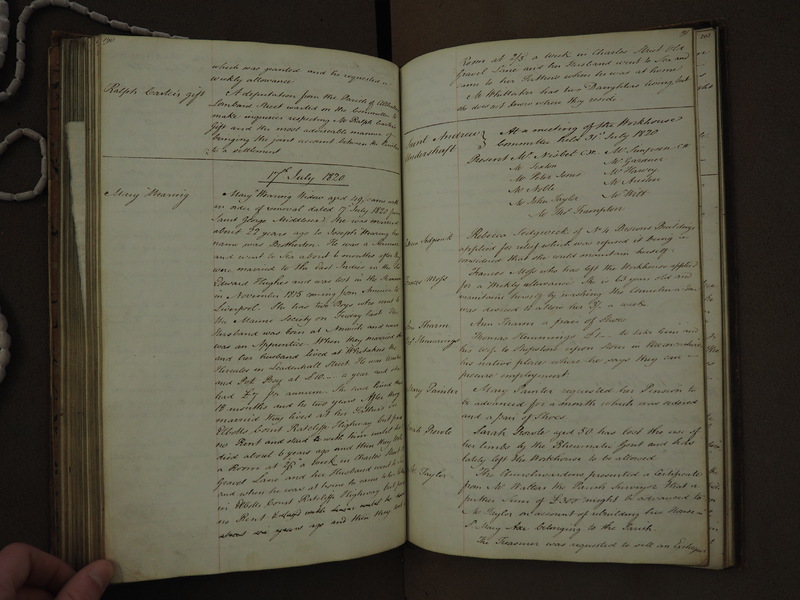 190
which was granted and he requested a
weekly allowance
Ralph Carter's gift
A deputation from the Parish of Allhallows
Lombard Street waited on the Committee to
make inquiries respecting Mr Ralph Carter's
Gift and the most adviseable manner of
bringing the joint account between the Parishes
to a settlement
17th July 1820
Mary Waring
Mary Waring Widow aged 49, came with
an order of removal dated 17 July 1820 from
Saint George Middlesex. She was married
about 22 years ago to Joseph Waring her
name was Brotherton. He was a Mariner
and went to Sea about 6 months after they
were married to the East Indies in the Sir
Edward Hughes and was lost in the
in November 1815 coming from America to
Liverpool. She has two Boys who went to
the Marine Society on Friday last. Her
Husband was born at Norwich and never
was an Apprentice. When they married she
and her husband lived at Whitakers the
Hercules in Leadenhall Street. He was Waiter
and Pot Boy at £10 a year and she
had £7 per annum. She had lived there
18 months and he two years. After they
married they lived at her Father's in
Elbotts Court Ratcliff Highway but paid
no Rent and staid with him until he
died about 6 years ago and then they took
a Room at 2/3 a week in Charles Street Old
Gravel Lane and her Husband went to Sea
and when he was at home to came to her
in Elbotts Court Ratcliffe Highway but paid
no Rent & staid with him until he died
about six years ago and then they took a
Room at 2/3 a week in Charles Street Old
Gravel Lane and her Husband went to Sea and
came to her Fathers when he was at home
Mr Whittaker has two Daughters living, but
she does not know where they reside
Saint Andrew
Undershaft
At a meeting of the Workhouse
Committee held 31st July 1820
Present Mr Nisbet
Mr Simpson
Mr Sexton
Mr Gardner
Mr Peter Jones
Mr Harvey
Mr Noble
Mr Austin
Mr John Taylor
Mr Witt
Mr Thos Frampton
Rebecca Sedgwick
Rebecca Sedgwick of No 4 Browns Buildings
applied for relief which was refused it being
considered that she could maintain herself.
Frances Moss
Frances Moss who has left the Workhouse applied
for a Weekly allowance. She is 62 years old and
maintains herself by washing. The Committee
was desired to allow her 3/ a week.
Ann Sharm
Ann Sharm a pair of Shoes
Thos Hemmings
Thomas Hemmings £1 to take him and
his wife to Shipston upon Stour in
his native place where he says they can
procure employment
Mary Painter
Mary Painter requested her Pension to
be advanced for a month which was ordered
and a pair of Shoes.
Sarah Prowle
Sarah Prowle aged 50 has lost the use of
her limbs by the Rheumatic Gout and
lately left the Workhouse to be allowed
Mr Taylor
The Churchwardens presented a Certificate
from Mr Walters the Parish Surveyor that a
further Sum of £300 might be advanced to
Mr Taylor on account of rebuilding his House in
St Mary Axe belonging to the Parish.
The Treasurer was requested to sell an Exchequer